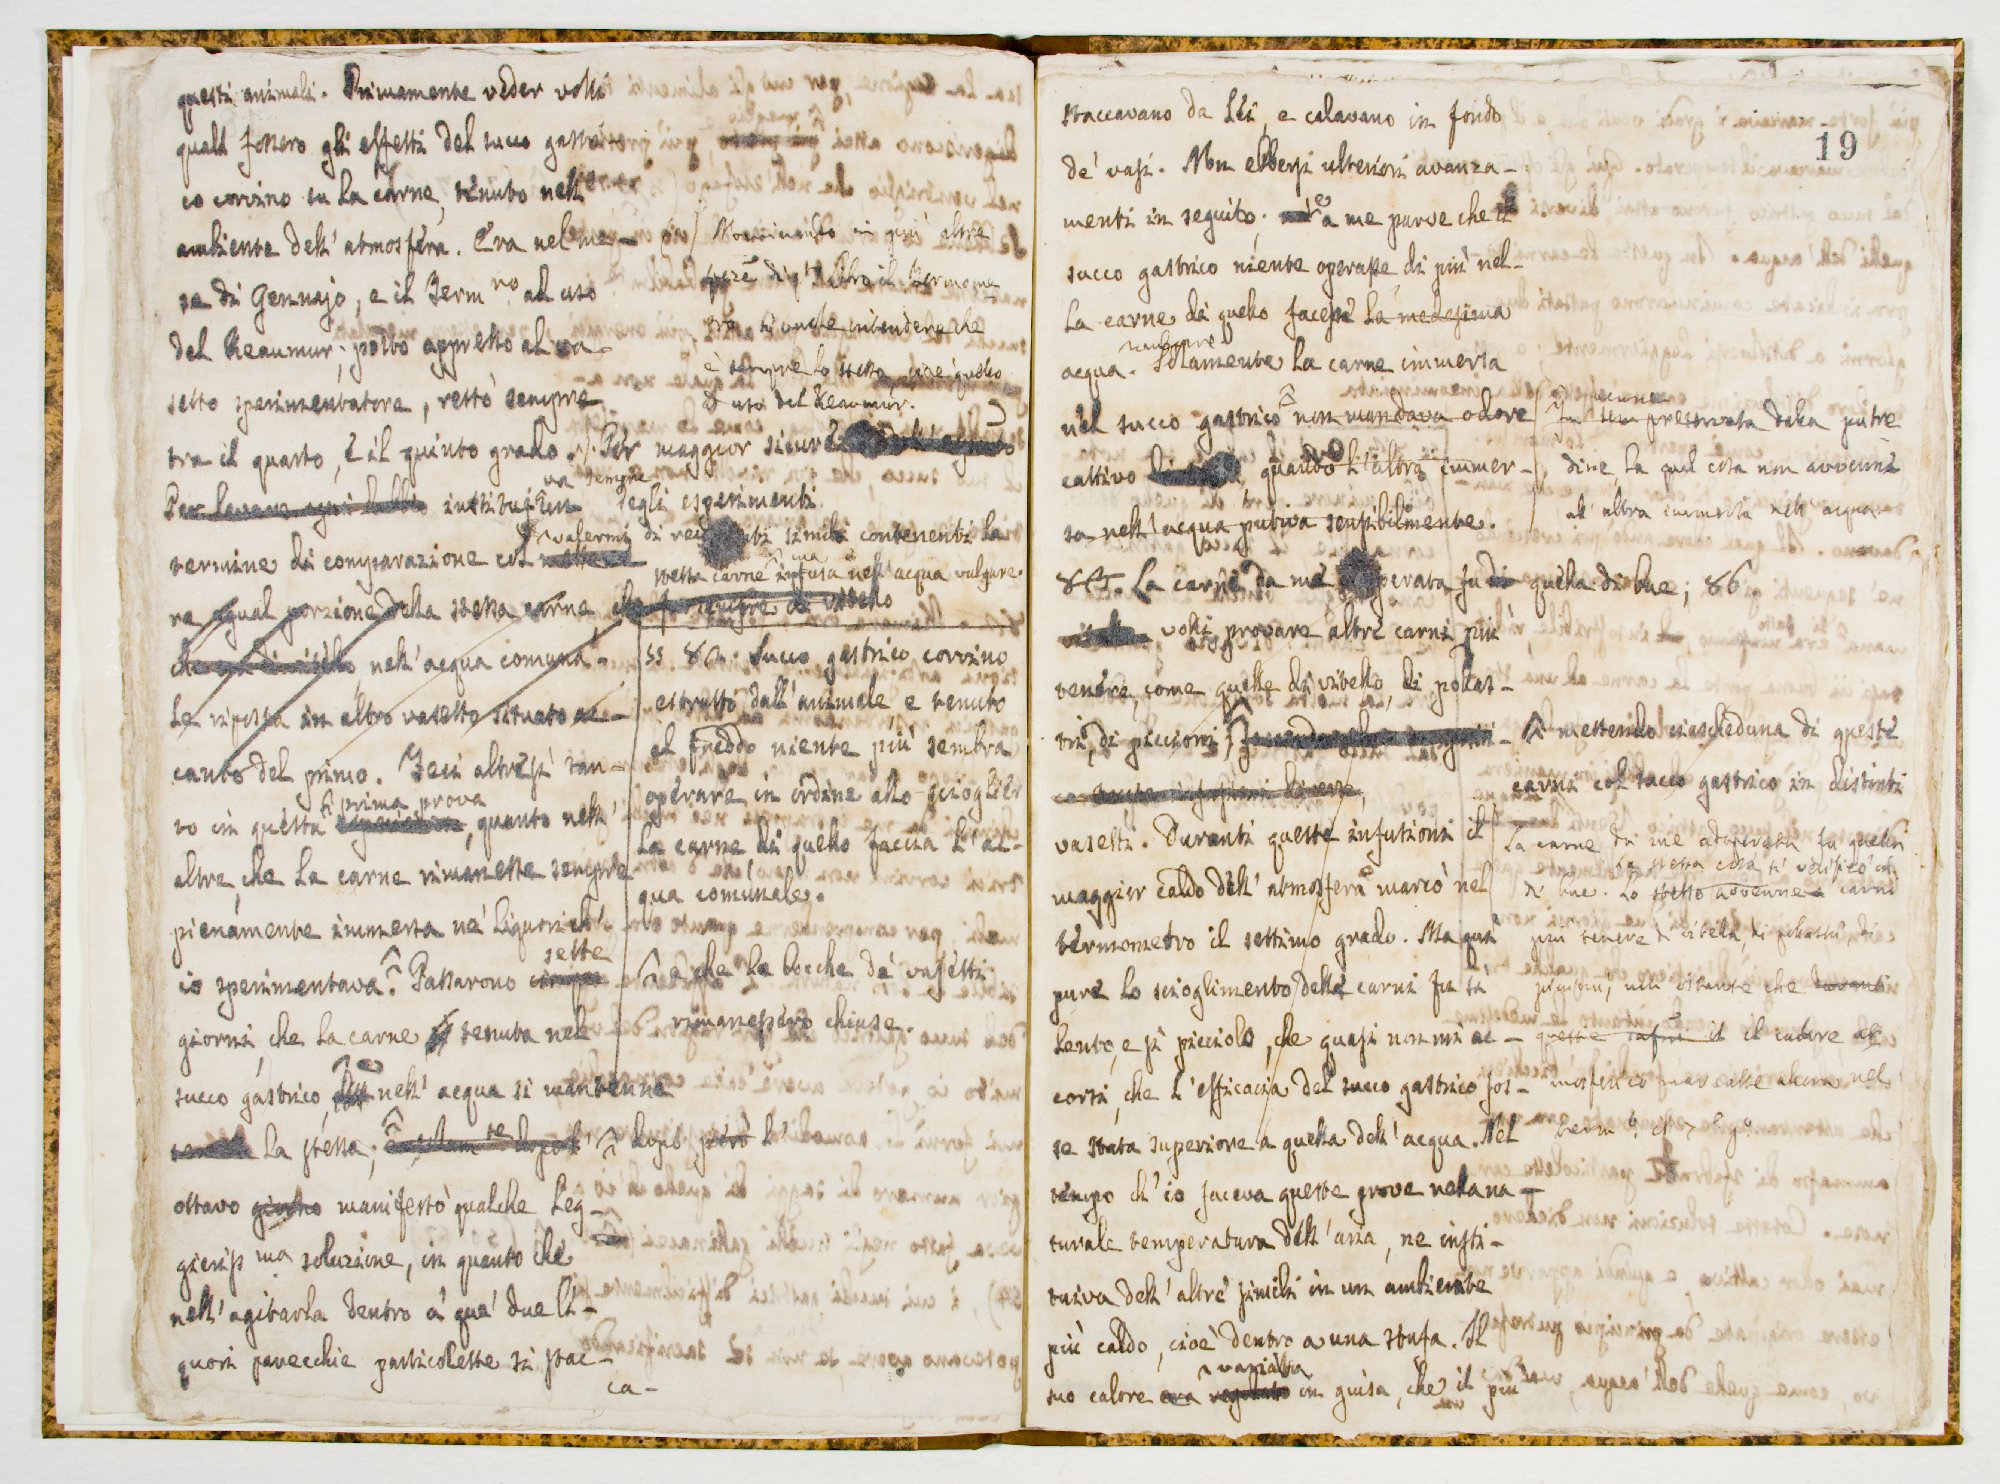 questi animali. Primamente veder volli
quali fossero gli effetti del succo gastri-
co corvino su la carne, tenuto nell'
ambiente dell' atmosfera. Era nel me-
se di Gennajo, e il Term.ro ad uso
del Reaumur, posto appresso al va-
setto sperimentatore, restò sempre
tra il quarto, e il quinto grado. Per maggior
Per levare ogni dubbio instituii un
va sempre
degli esperimenti
termine di comparazione col mettere
valermi di simili contenenti la
stessa carne infusa nell' acqua vulgare.
re egual porzione della stessa carne, che fu sempre di vitello
nell' acqua comuna-
le riposta in altro vasetto situato ac-
canto del primo. Feci altresì tan-
prima prova
to in questa, quanto nell'
altre, che la carne rimanesse sempre
pienamente immersa ne' liquori ch'
sette
io sperimentava. Passarono cinque
giorni, che la carne tenuta nel
succo gastrico, nell' acqua si mantenne
la stessa; dopo però l'
ottavo giorno manifestò qualche leg-
gierissma soluzione, in quanto che
nell' agitarla dentro a' que' due li-
quori parecchie particolette si stac-
ca-
Nominando in più altre
di q.to Libro il termome
tro si vuole intendere che
è sempre lo stesso, cioè quello
d' uso del Reaumur.
Succo gastrico corvino
estratto dall' animale e tenuto
al freddo niente più sembra
operare in ordine allo scioglier
la carne di quello faccia l' ac-
qua comunale.
a che le bocche de' vasetti
rimanessero chiuse.
19
staccavano da lei, e calavano in fondo
de' vasi. Non ebbersi ulteriori avanza-
menti in seguito; e a me parve che il
succo gastrico niente operasse di più nel-
la carne di quello facesse la medesima
acqua. Solamente la carne immersa
nel succo gastrico non mandava odore
cattivo, quando l' altra immer-
sa nell' acqua putiva sensibilmente.
preservata dalla putre
dine, la qual cosa non avvenne
all' altra immersa nell' acqua.
La carne da me adoperata fu quella di bue; 86
volli provare altre carni più
tenere, come quelle di vitello, di pollas-
tri, di piccioni,
mettendo ciascheduna di queste
carni col succo gastrico in distinti
vasetti. Duranti queste infusioni il
maggior caldo dell' atmosfera marcò nel
termometro il settimo grado. Ma qui
pure lo scioglimento delle carni fu sì
lento, e sì picciolo, che quasi non mi ac-
corsi, che l' efficacia del succo gastrico fos-
se stata superiore a quella dell' acqua. Nel
tempo ch' io faceva queste prove nela na-
turale temperatura dell' aria, ne insti-
tuiva dell' altre simili in un ambiente
più caldo, cioè dentro a una stufa. Il
variava
suo calore era regolato in guisa, che il più
La carne da me adoperata fu quella
la stessa cosa si verificò
di bue. Lo stesso avvenne a carni
più tenere di vitella, di pollastri, di
piccioni, non ostante che duranti
queste il calore at
mosferico marcasse allora nel